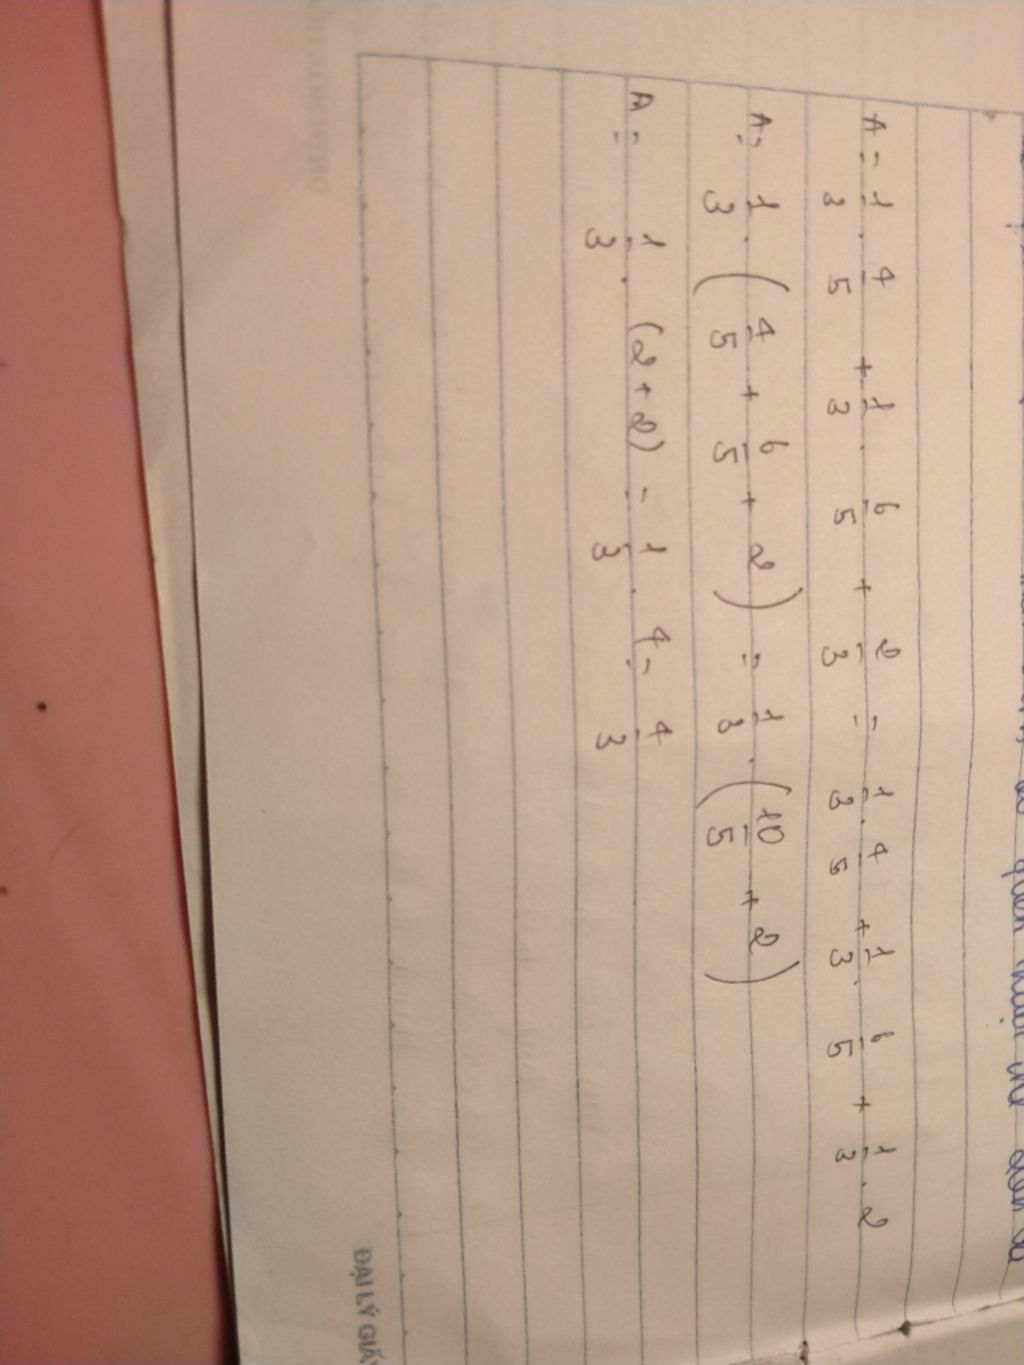 A = 1/3 . 4/5 + 1/3 . 6/5 + 2/3 = 1/3 . 4/5 + 1/3 . 6/5 + 1/3 . 2
A = 1/3 . ( 4/5 + 6/5 + 2 ) = 1/3 . ( 10/5 + 2 )
A = 1/3 . (2 + 2) = 1/3 . 4 = 4/3
ĐẠI LÝ GIẤY